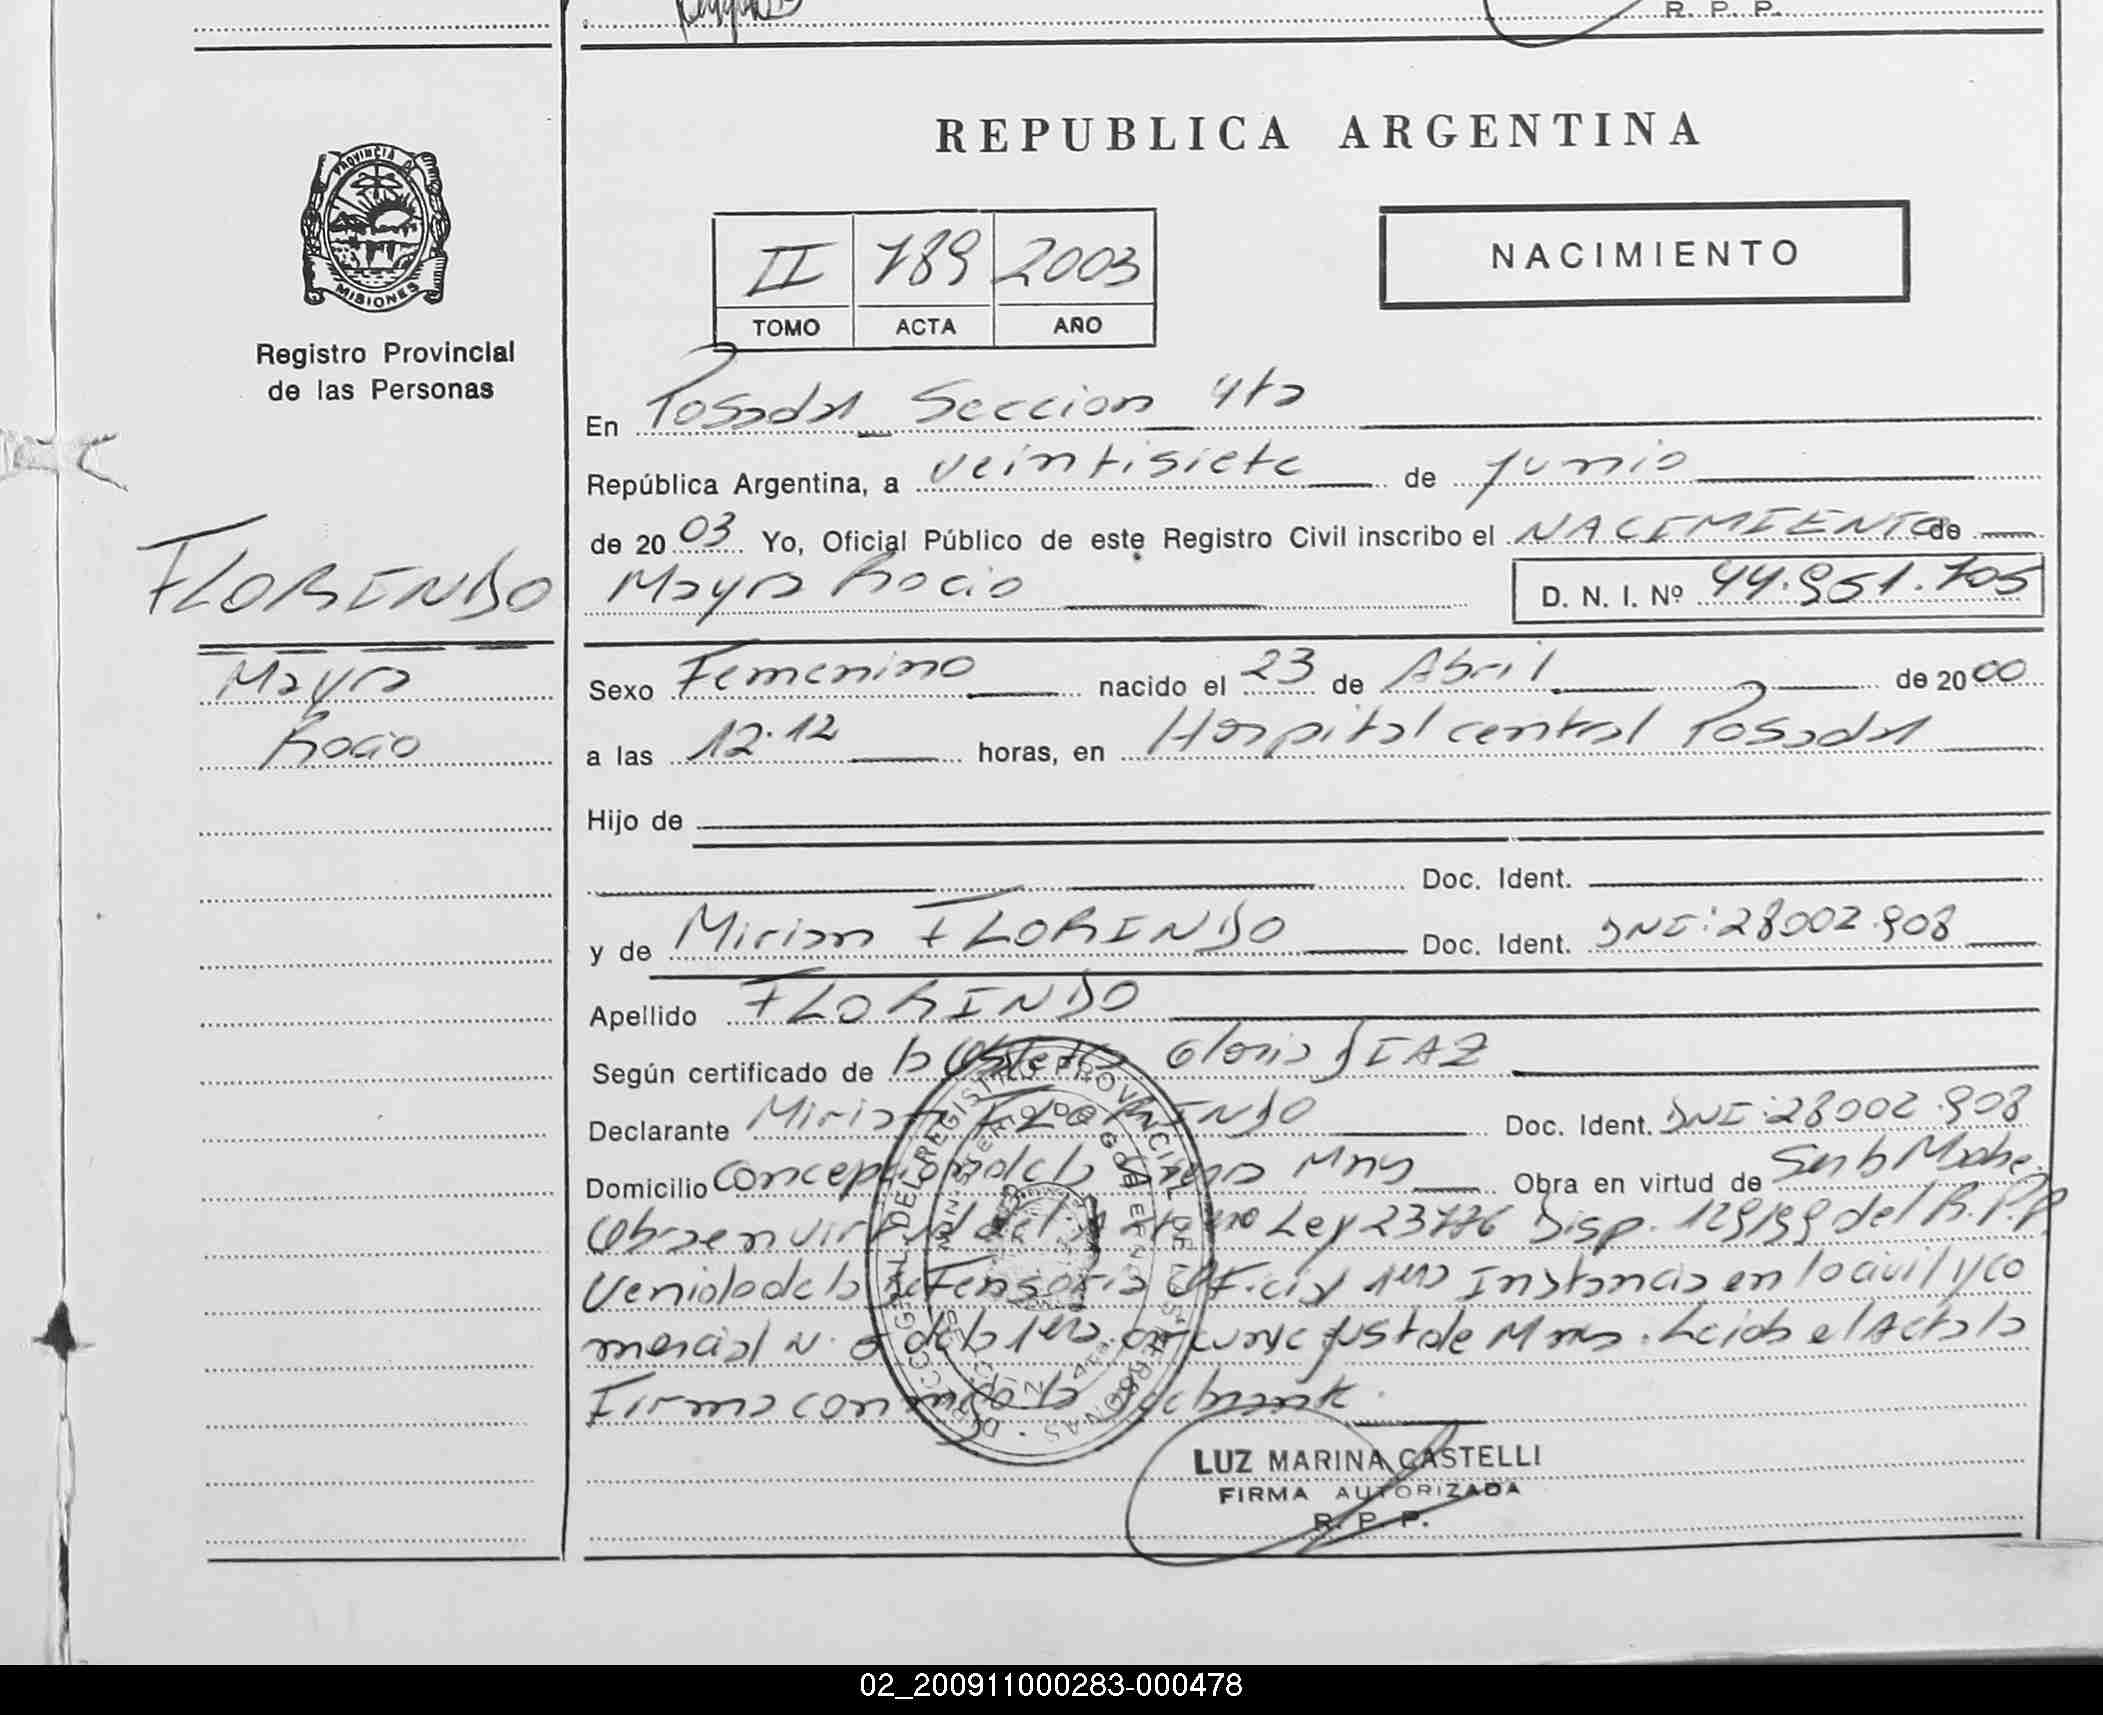 R. P. P.
REPUBLICA ARGENTINA
PROVINCIA DE
MISIONES
Registro Provincial
de las Personas
II 789 2003
TOMO ACTA AÑO
NACIMIENTO
En Posadas Seccion 4ta
República Argentina, a veintisiete de Junio
de 2003 Yo, Oficial Público de este Registro Civil inscribo el NACIMIENTO de
FLORINDO
Mayra Rocio D. N. I. Nº 44.951.705
Mayra
Rocio
Sexo Femenino nacido el 23 de Abril de 2000
a las 12.12 horas, en Hospital central Posadas
Hijo de
Doc. Ident.
y de Miriam FLORINDO Doc. Ident. DNI: 28002.908
Apellido FLORINDO
Según certificado de la Obstetra Gloria DIAZ
Declarante Miriam FLORINDO Doc. Ident. DNI: 28002.908
Domicilio Concepcion de la Sierra Mns Obra en virtud de Ser la Madre.
Obra en virtud del Ley 23776 Disp. 129/99 del R.P.P
Venido de la Defensoria Oficial 1era Instancia en lo civil y co
mercial N. de la 1era. Just de Mnes. Leida el Acta la
Firma conmigo la
LUZ MARINA CASTELLI
FIRMA AUTORIZADA
R. P. P.
02_200911000283-000478